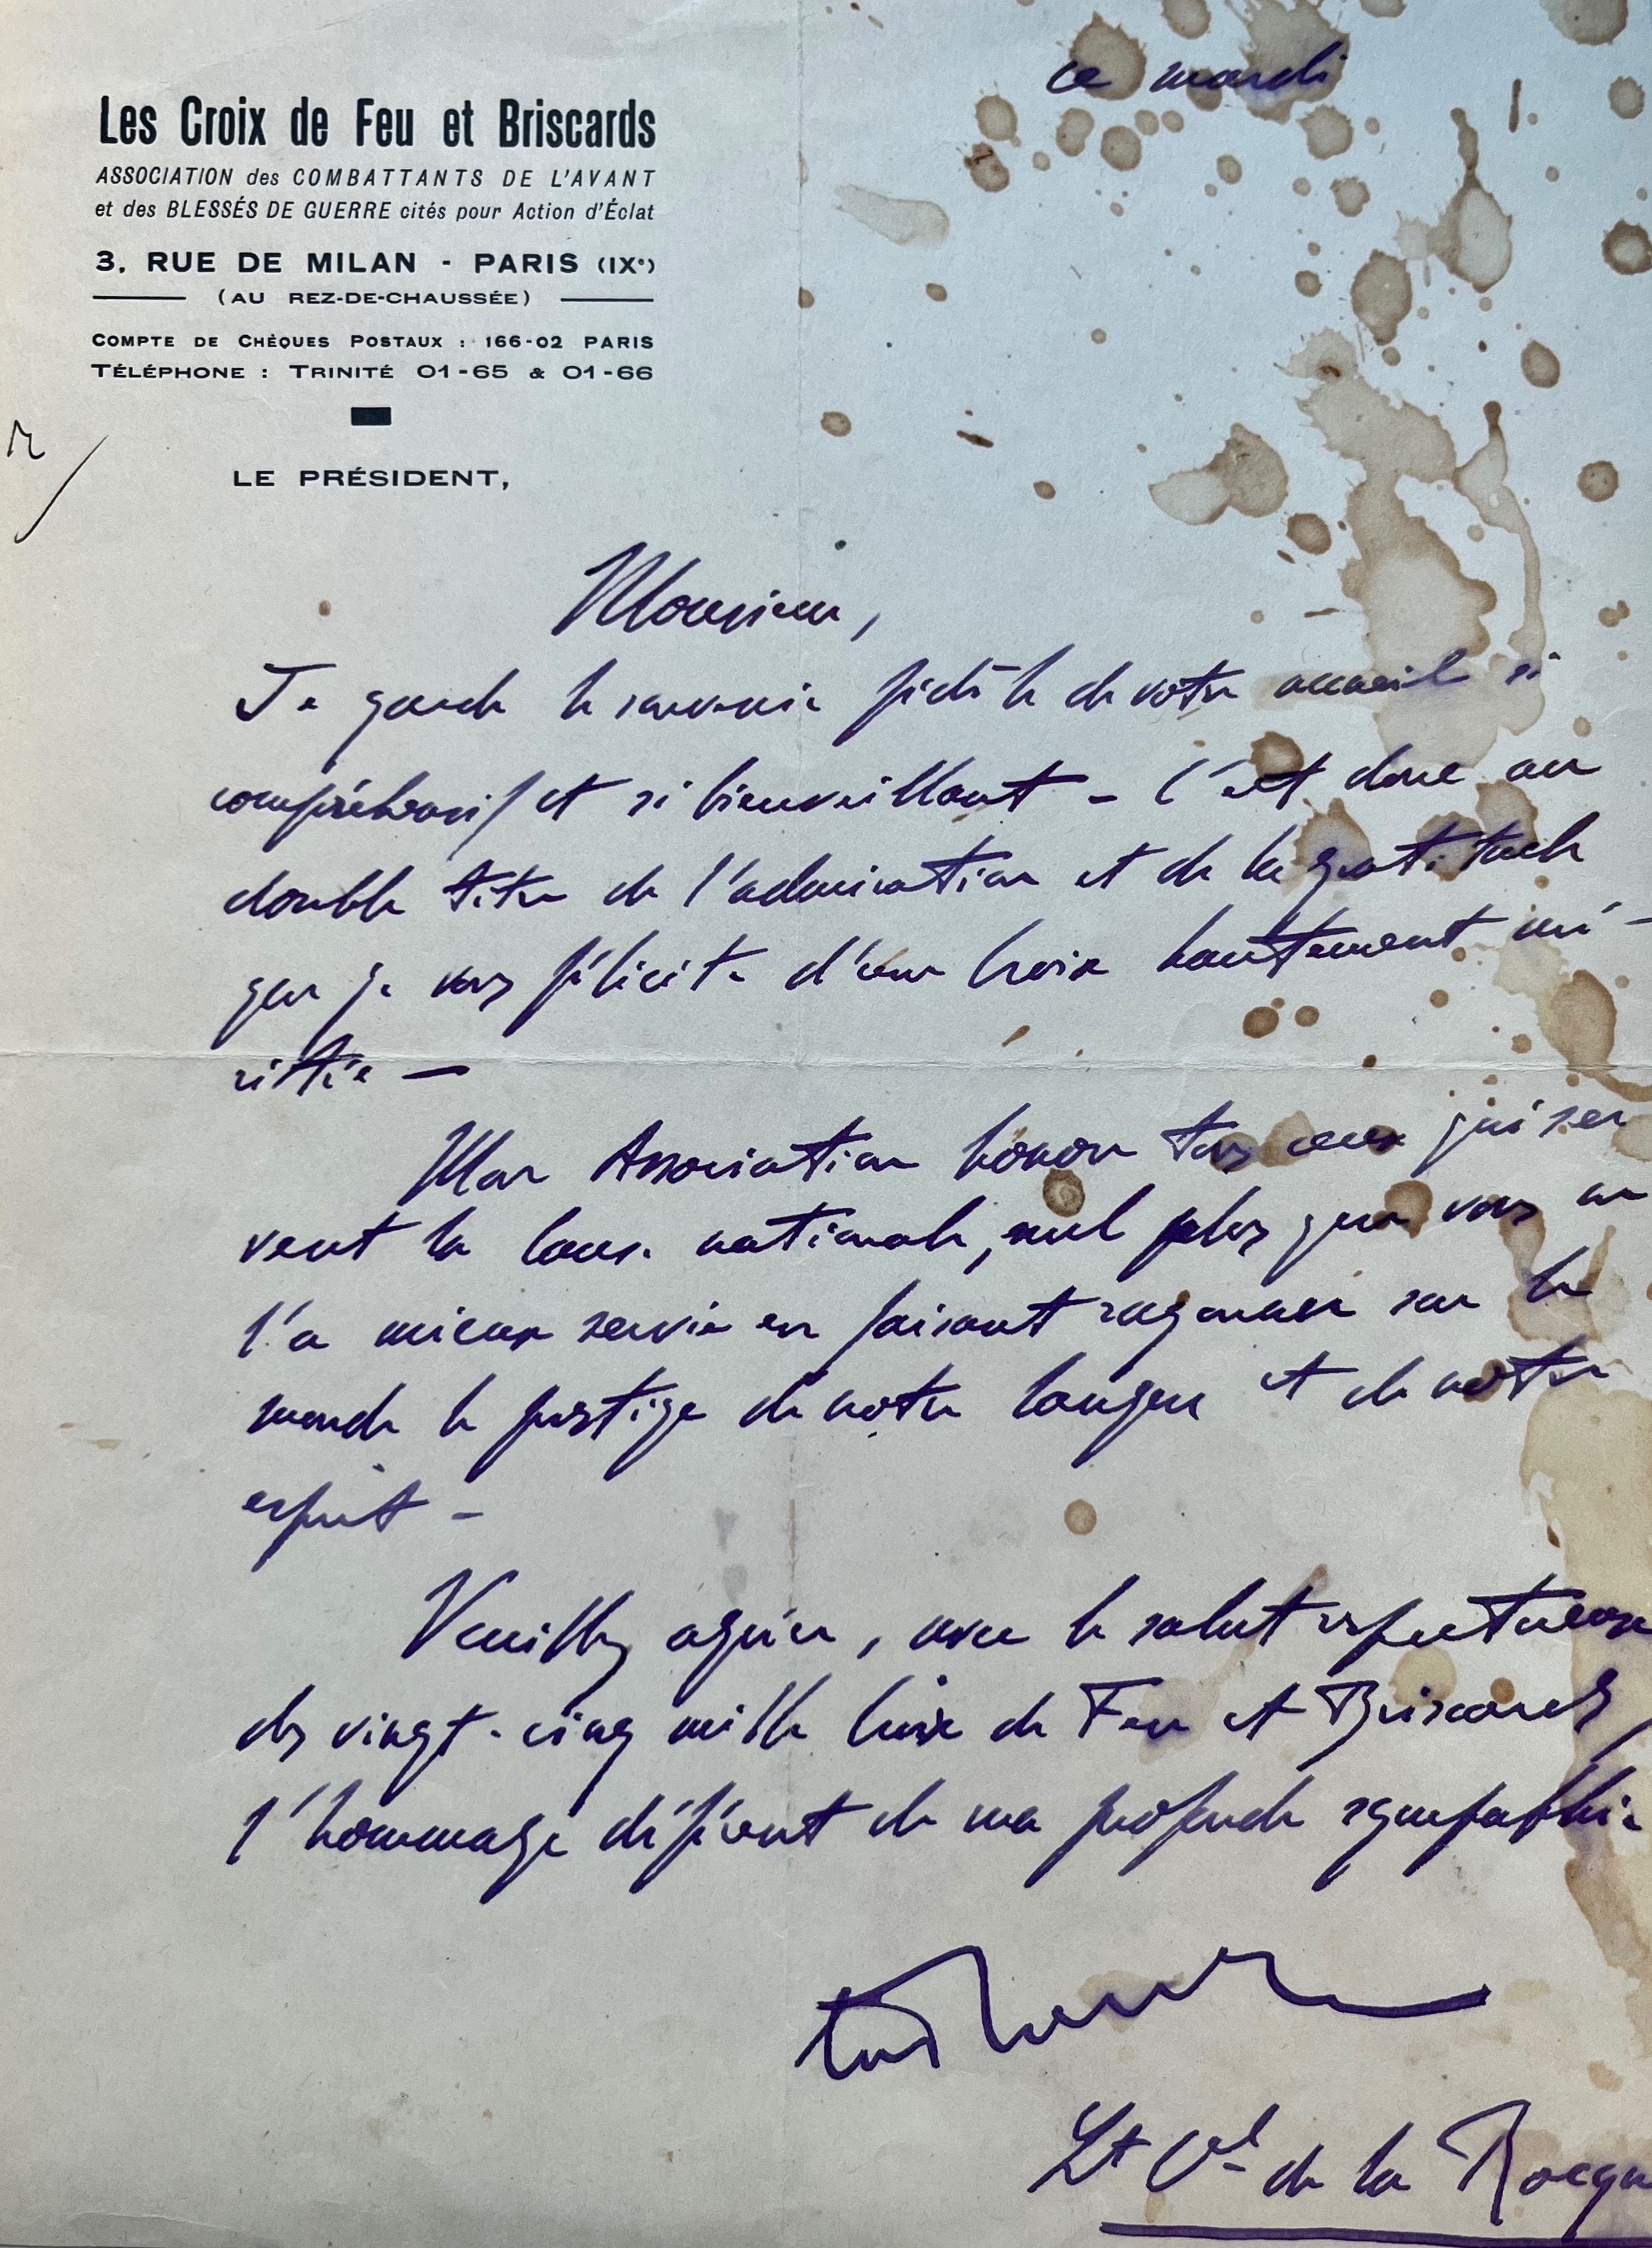 ce mardi
Les Croix de Feu et Briscards
ASSOCIATION des COMBATTANTS DE L'AVANT
et des BLESSÉS DE GUERRE cités pour Action d'Éclat
3, RUE DE MILAN - PARIS (IXe)
(AU REZ-DE-CHAUSSÉE)
COMPTE DE CHÈQUES POSTAUX : 166-02 PARIS
TÉLÉPHONE : TRINITÉ 01-65 & 01-66
LE PRÉSIDENT,
Monsieur,
Je garde le souvenir fidèle de votre accueil si
compréhensif et si bienveillant - C'est donc au
double titre de l'admiration et de la gratitude
que je vous félicite d'une Croix hautement mé-
ritée —
Mon Association honore tous ceux qui ser
vent la cause nationale, nul plus que vous ne
l'a mieux servie en faisant rayonner sur le
monde le prestige de notre langue et de notre
esprit -
Veuillez agréer, avec le salut respectueux
des vingt-cinq mille Croix de Feu et Briscards,
l'hommage déférent de ma profonde sympathie
Lt Cel de la Rocque